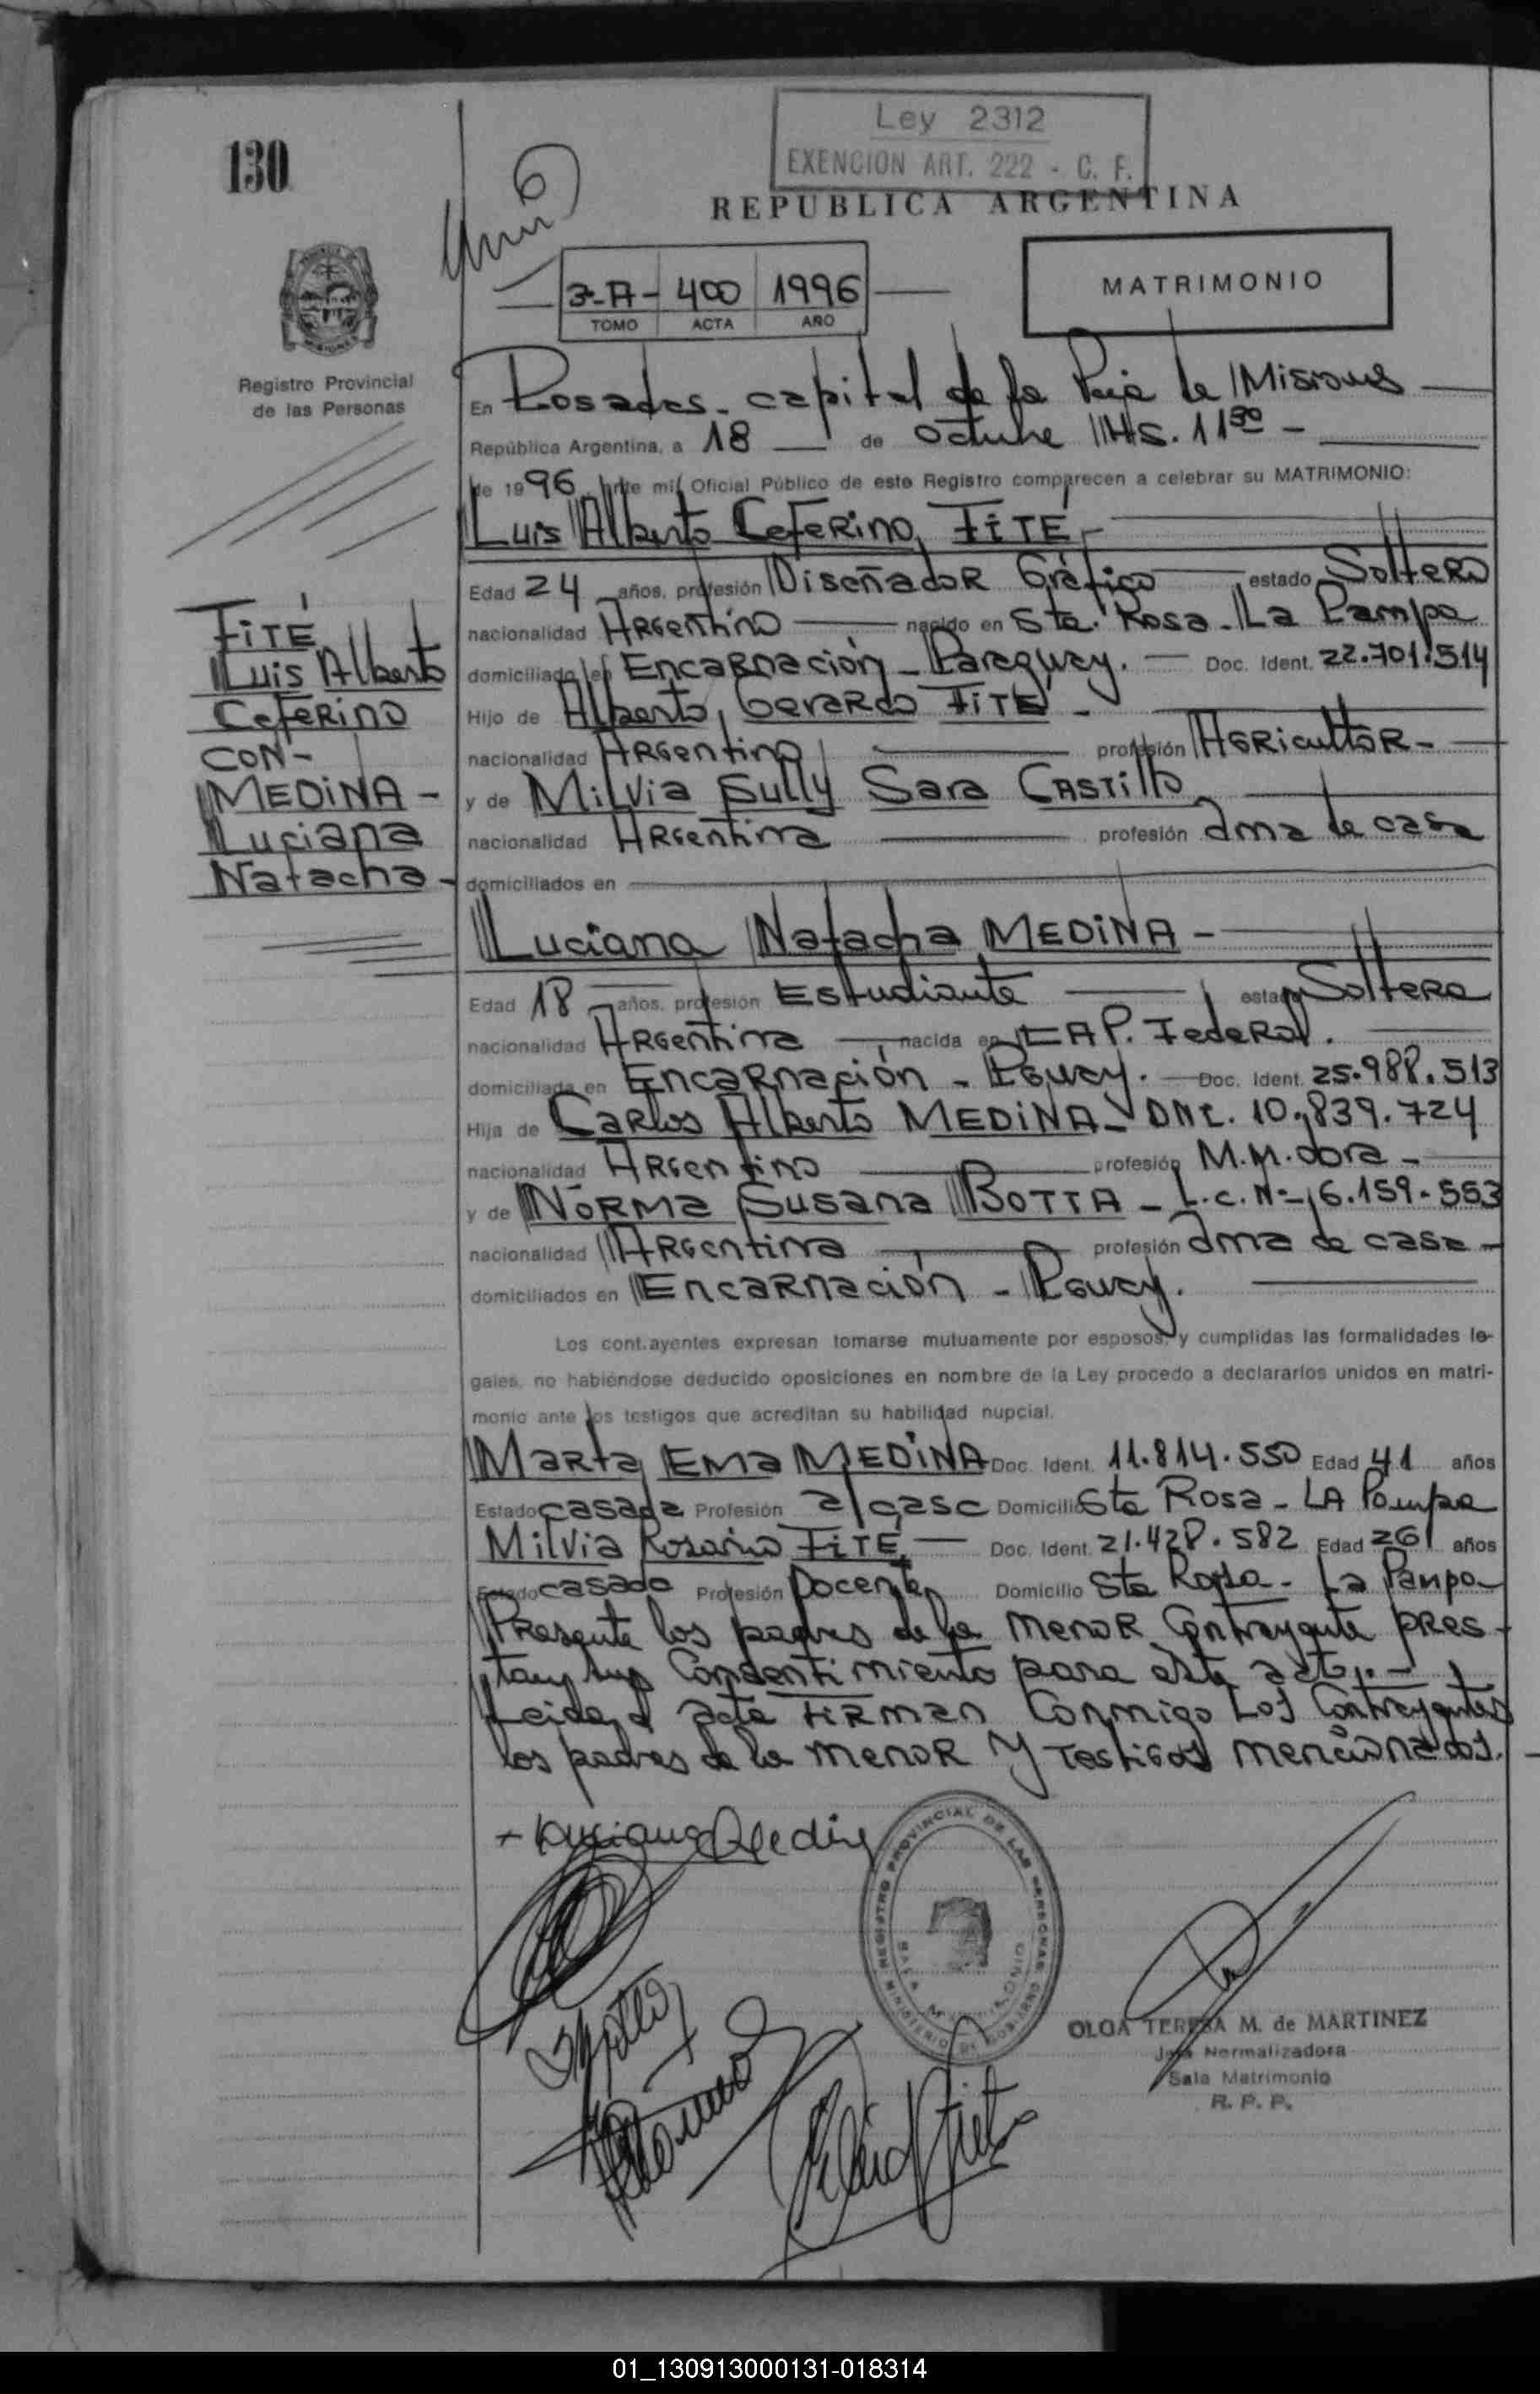 Ley 2312
EXENCION ART. 222 - C. F.
130
REPUBLICA ARGENTINA
3-A- 400 1996
TOMO ACTA AÑO
MATRIMONIO
Registro Provincial
de las Personas
En Posadas - capital de la Pcia de Misiones
República Argentina, a 18 de Octubre Hs. 11 30 -
de 1996 ante mi Oficial Público de este Registro comparecen a celebrar su MATRIMONIO:
Luis Alberto Ceferino FITE -
Edad 24 años, profesión Diseñador Gráfico estado Soltero
nacionalidad Argentino nacido en Sta. Rosa - La Pampa
domiciliado en Encarnación - Paraguay. - Doc. Ident. 22.701.514
Hijo de Alberto Gerardo FITE -
nacionalidad Argentino profesión Agricultor -
y de Milvia Sully Sara CASTillo
nacionalidad Argentina profesión ama de casa
domiciliados en
FITE
Luis Alberto
Ceferino
CON -
MEDINA -
Luciana
Natacha -
Luciana Natacha MEDINA -
Edad 18 años, profesión Estudiante estado Soltera
nacionalidad Argentina nacida en CAP. Federal.
domiciliada en Encarnación - Pguay. - Doc. Ident. 25.988.513
Hija de Carlos Alberto MEDINA - DNI. 10.839.724
nacionalidad Argentino profesión M.M.dora -
y de Norma Susana BOTTA - L.c. Nº 6.159.553
nacionalidad Argentina profesión ama de casa -
domiciliados en Encarnación - Pguay.
Los cont.ayentes expresan tomarse mutuamente por esposos, y cumplidas las formalidades le-
gales, no habiéndose deducido oposiciones en nombre de la Ley procedo a declararlos unidos en matri-
monio ante los testigos que acreditan su habilidad nupcial.
Marta Ema MEDINA Doc. Ident. 11.814.550 Edad 41 años
Estado casada Profesión a/casa Domicilio Sta Rosa - LA Pampa
Milvia Rosario FITE - Doc. Ident. 21.428.582 Edad 26 años
Estado casada Profesión Docente Domicilio Sta Rosa - La Pampa
Presente los padres de la menor contrayente pres-
tan su consentimiento para este acto. -
Leida el acta firman conmigo los contrayentes
los padres de la menor y testigos mencionados. -
Luciana Medina
REGISTRO PROVINCIAL DE LAS PERSONAS
MINISTERIO DE GOBIERNO
SALA MATRIMONIO
OLGA TERESA M. de MARTINEZ
Jefa Normalizadora
Sala Matrimonio
R. P. P.
01_130913000131-018314